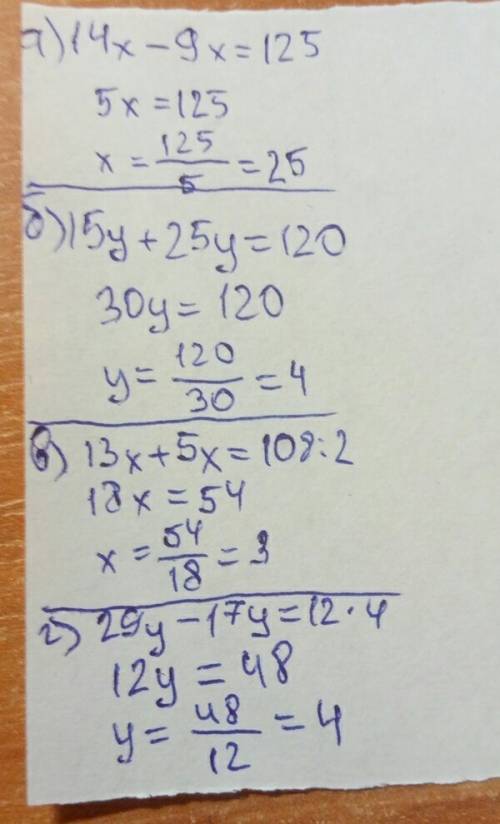 а) 14x - 9x = 125
5x = 125
x = 125/5 = 25
б) 15y + 25y = 120
30y = 120
y = 120/30 = 4
в) 13x + 5x = 108:2
18x = 54
x = 54/18 = 3
г) 29y - 17y = 12 · 4
12y = 48
y = 48/12 = 4